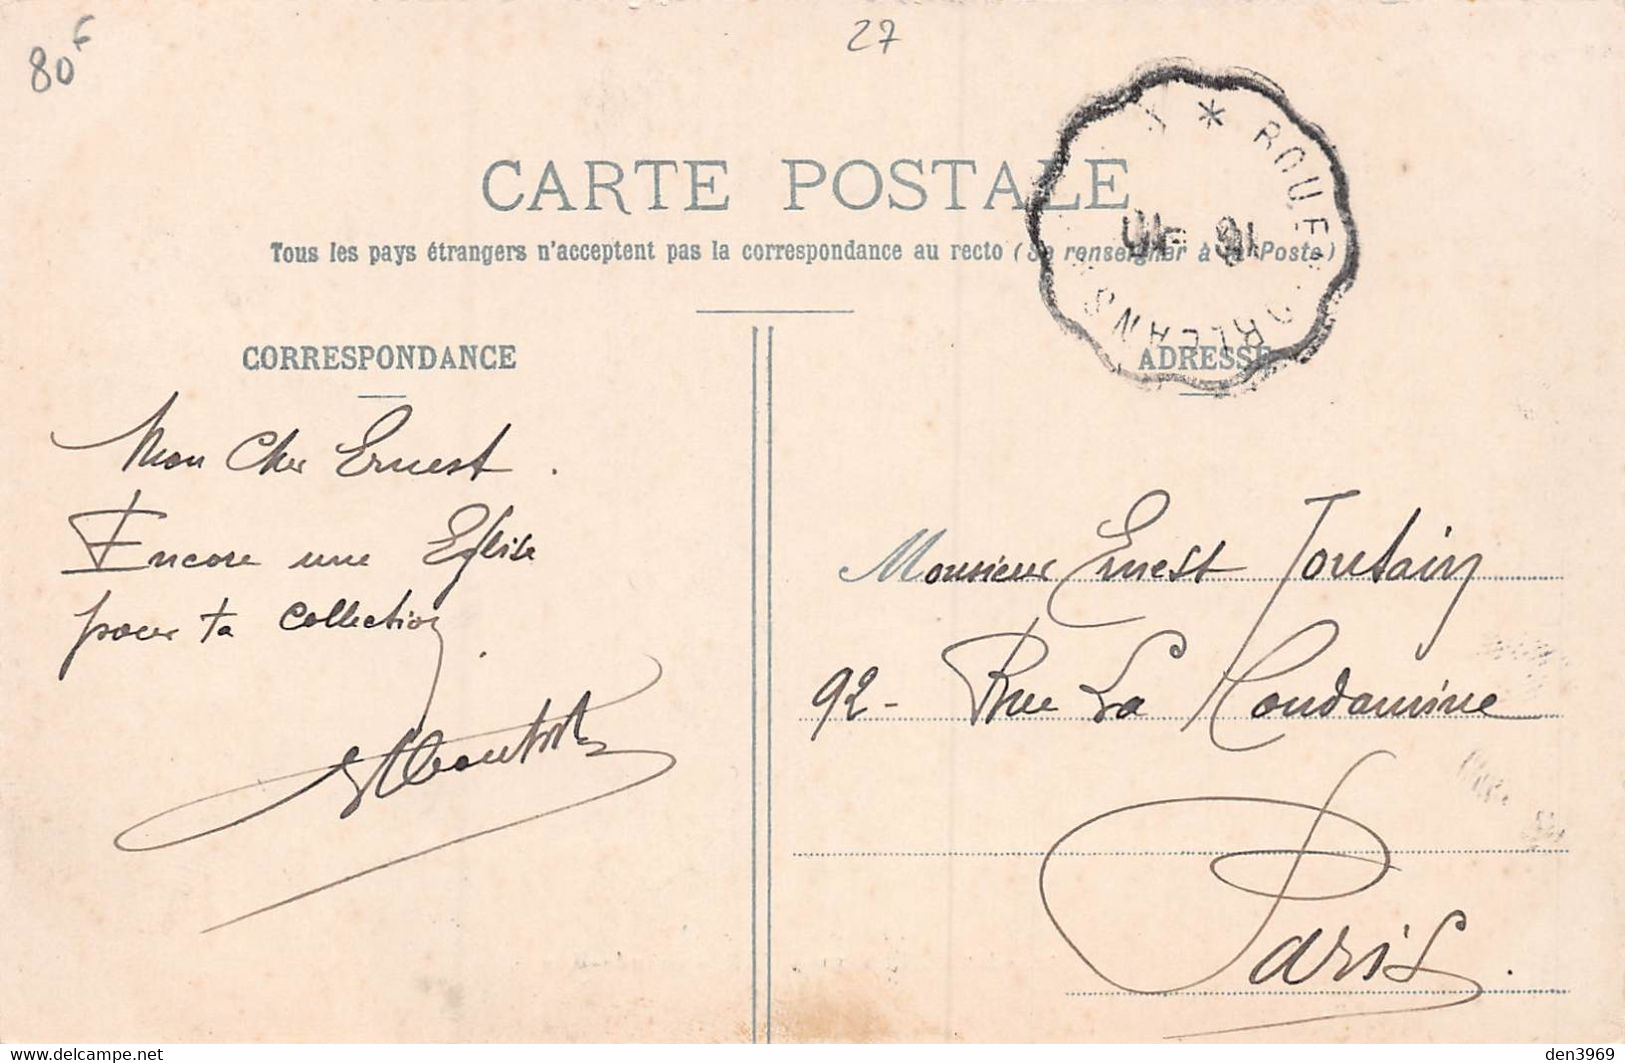 80F
27
CARTE POSTALE
Tous les pays étrangers n'acceptent pas la correspondance au recto (Se renseigner à la Poste)
ROUEN
ORLEANS
CORRESPONDANCE
ADRESSE
Mon Cher Ernest.
Encore une Eglise
pour ta collection.
Monsieur Ernest Toutain
92 - Rue La Condamine
Paris.
den3969